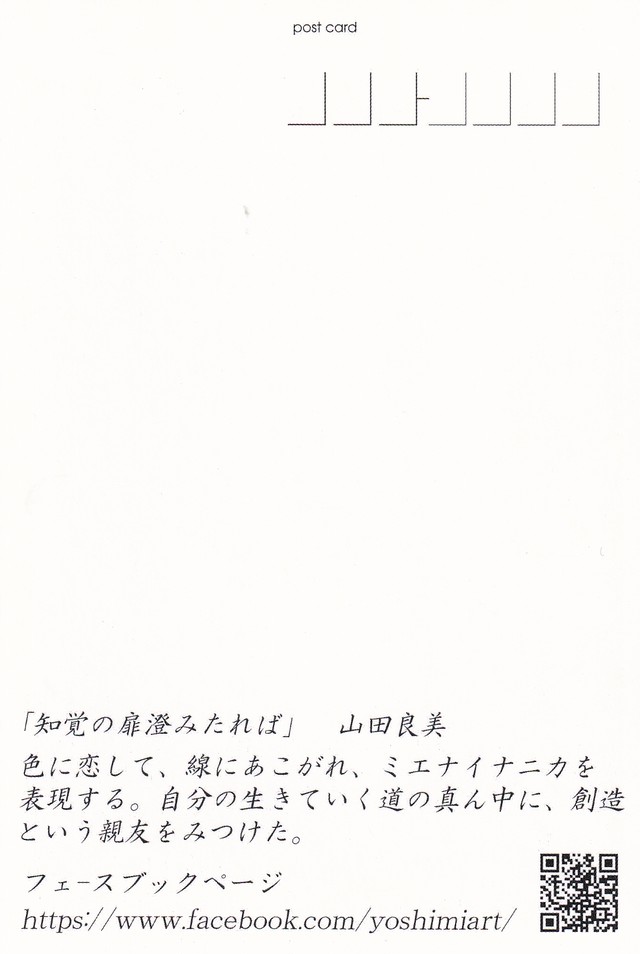 post card
「知覚の扉澄みたれば」　山田良美
色に恋して、線にあこがれ、ミエナイナニカを
表現する。自分の生きていく道の真ん中に、創造
という親友をみつけた。
フェースブックページ
https://www.facebook.com/yoshimiart/